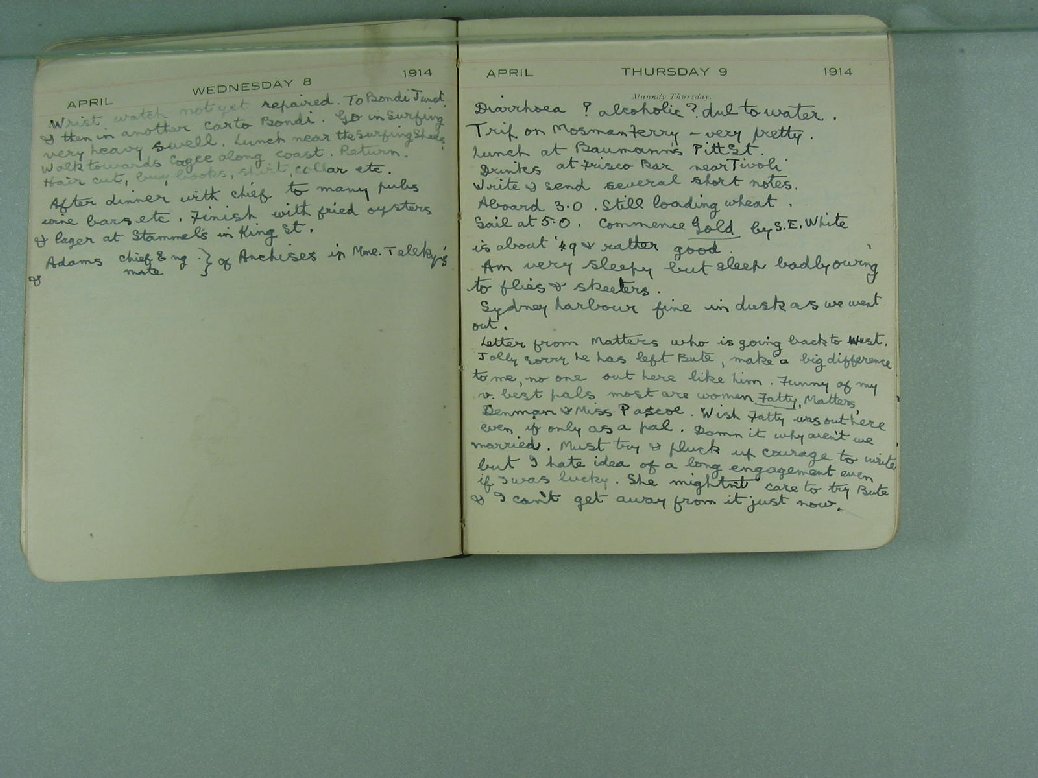 APRIL WEDNESDAY 8 1914
Wrist watch not yet repaired. To Bondi Junct.
& then in another car to Bondi. Go in surfing
very heavy swell. Lunch near the Surfing Sheds.
Walk towards Cogee along coast. Return.
Hair cut, buy books, shirt, collar etc.
After dinner with chief to many pubs
wine bars etc. Finish with fried oysters
& lager at Stammel's in King St.
Adams chief Eng } of Anchises in Mme. Teleky's
& mate }
APRIL THURSDAY 9 1914
Maundy Thursday.
Diarrhoea ? alcoholic ? due to water.
Trip on Mosman Ferry – very pretty.
Lunch at Baumann's Pitt St.
Drinks at Frisco Bar near Tivoli
Write & send several short notes.
Aboard 3.0. Still loading wheat.
Sail at 5.0. Commence Gold by S.E. White
is about '49 & rather good.
Am very sleepy but sleep badly owing
to flies & skeeters.
Sydney harbour fine in dusk as we went
out.
Letter from Matters who is going back to West.
Jolly sorry he has left Bute, make a big difference
to me, no one out here like him. Funny of my
v. best pals most are women Fatty, Matters,
Denman & Miss Pascoe. Wish Fatty was out here
even if only as a pal. Damn it why aren't we
married. Must try & pluck up courage to write
but I hate idea of a long engagement even
if I was lucky. She mightnt care to try Bute
& I can't get away from it just now.